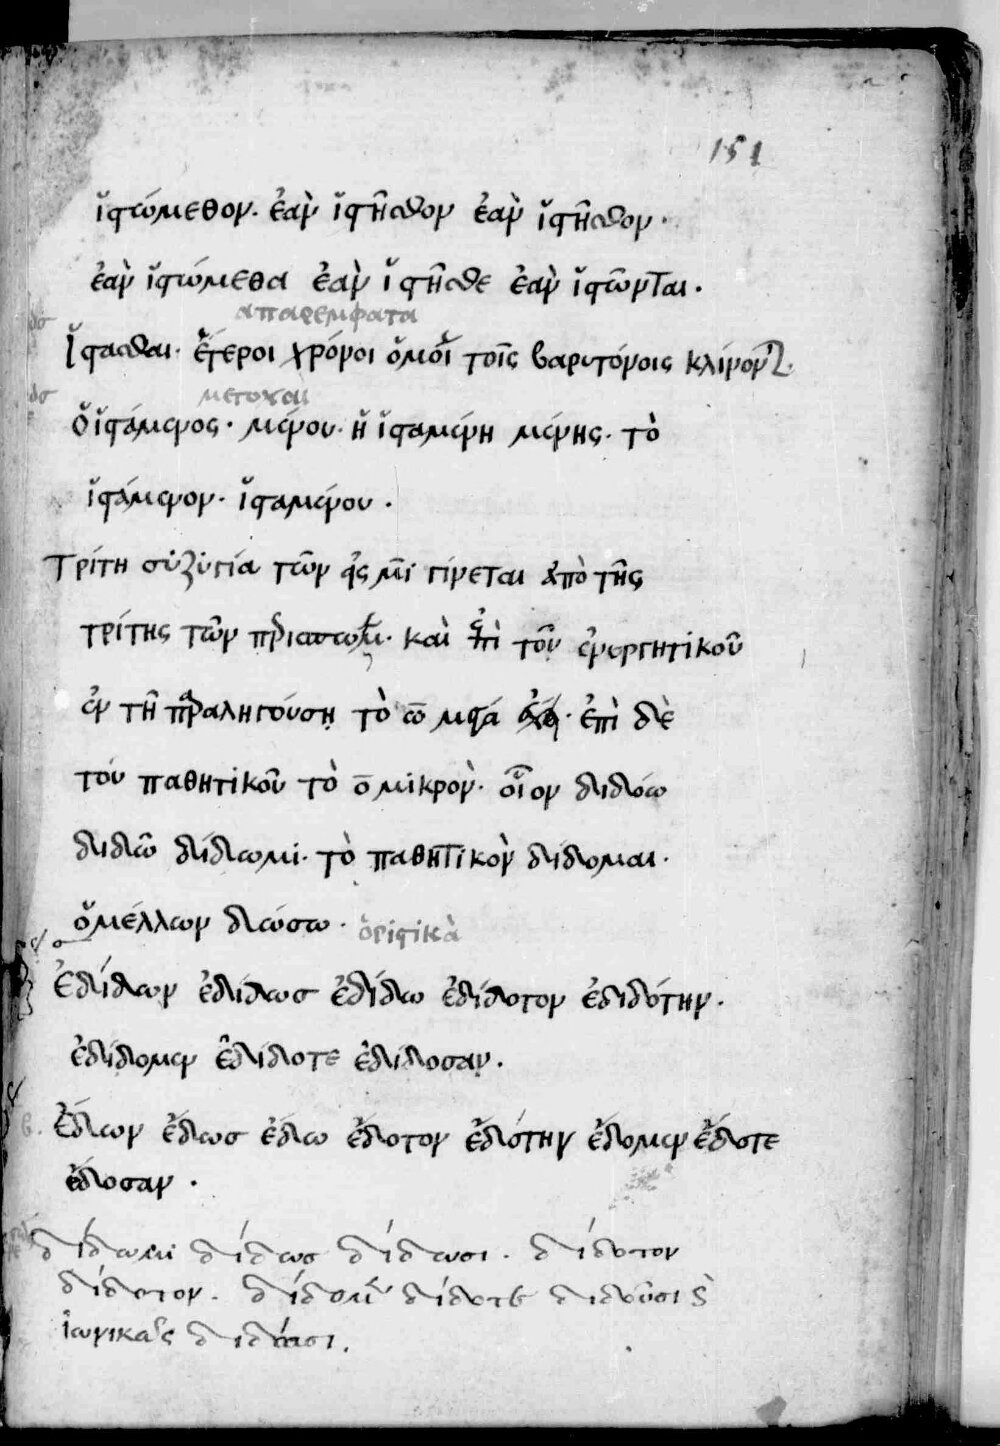 151
ἵστώμεθον. ἐὰν ἵστῆσθον ἐὰν ἵστῆσθον.
ἐὰν ἵστώμεθα ἐὰν ἵστῆσθε ἐὰν ἵστῶνται.
ἀπαρέμφατα
ἵστασθαι. ἕτεροι χρόνοι ὅμοι τοῖς βαρυτόνοις κλίνον
μετοχαὶ
ὅ ἵστάμενος. μένου. ἥ ἵσταμένη μένης. τὸ
ἵστάμενον. ἵσταμένου.
Τρίτη συζυγία τῶν εἰς μῖ γίνεται ἀπὸ τῆς
τρίτης τῶν περισπωμ. καὶ ἐπὶ τοῦ ἐνεργητικοῦ
ἐν τῆ παραληγούση τὸ ω μέγα. ἐπὶ δὲ
τοῦ παθητικοῦ τὸ ο μικρὸν. οἷον διδόω
διδῶ δίδωμι. τὸ παθητικὸν δίδομαι.
ὅ μέλλων δώσω. ὁριστικὰ
Ἐδίδων ἐδίδως ἐδίδω ἐδίδοτον ἐδιδότην.
ἐδίδομεν ἐδίδοτε ἐδίδοσαν.
β. Ἔδων ἔδως ἔδω ἔδοτον ἐδότην ἔδομεν ἔδοτε
ἔδοσαν.
δίδωμι δίδως δίδωσι. δίδοτον
δίδοτον. δίδομεν δίδοτε διδοῦσι ϗ
ἰωνικῶς διδόασι.